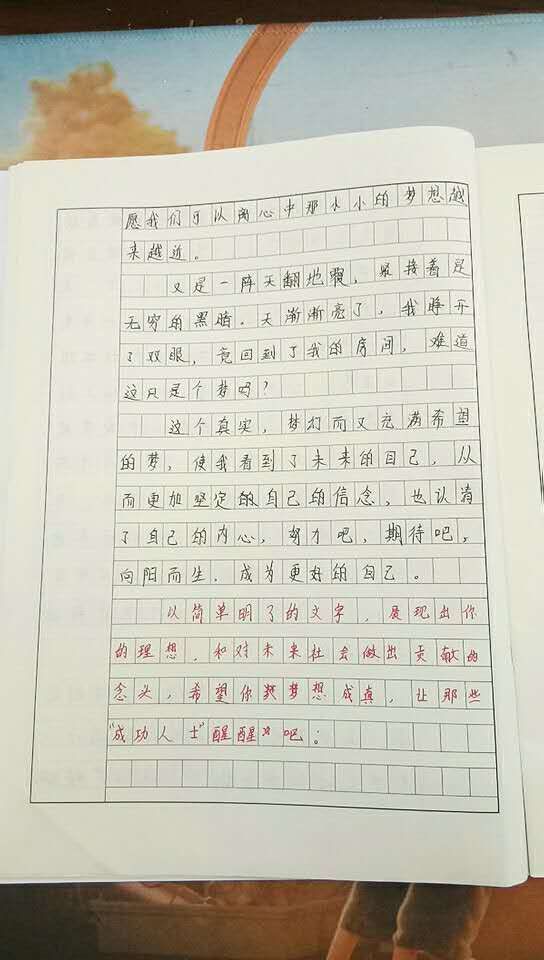 愿我们可以离心中那小小的梦想越
来越近。
又是一阵天翻地覆，紧接着是
无穷的黑暗．天渐渐亮了，我睁开
了双眼，竟回到了我的房间，难道
这只是个梦吗？
这个真实，梦幻而又充满希望
的梦，使我看到了未来的自己，从
而更加坚定的自己的信念，也认清
了自己的内心，努力吧，期待吧，
向阳而生．成为更好的自己。
以简单明了的文字，展现出你
的理想．和对未来社会做出贡献的
念头，希望你梦想成真，让那些
“成功人士”醒醒吧；